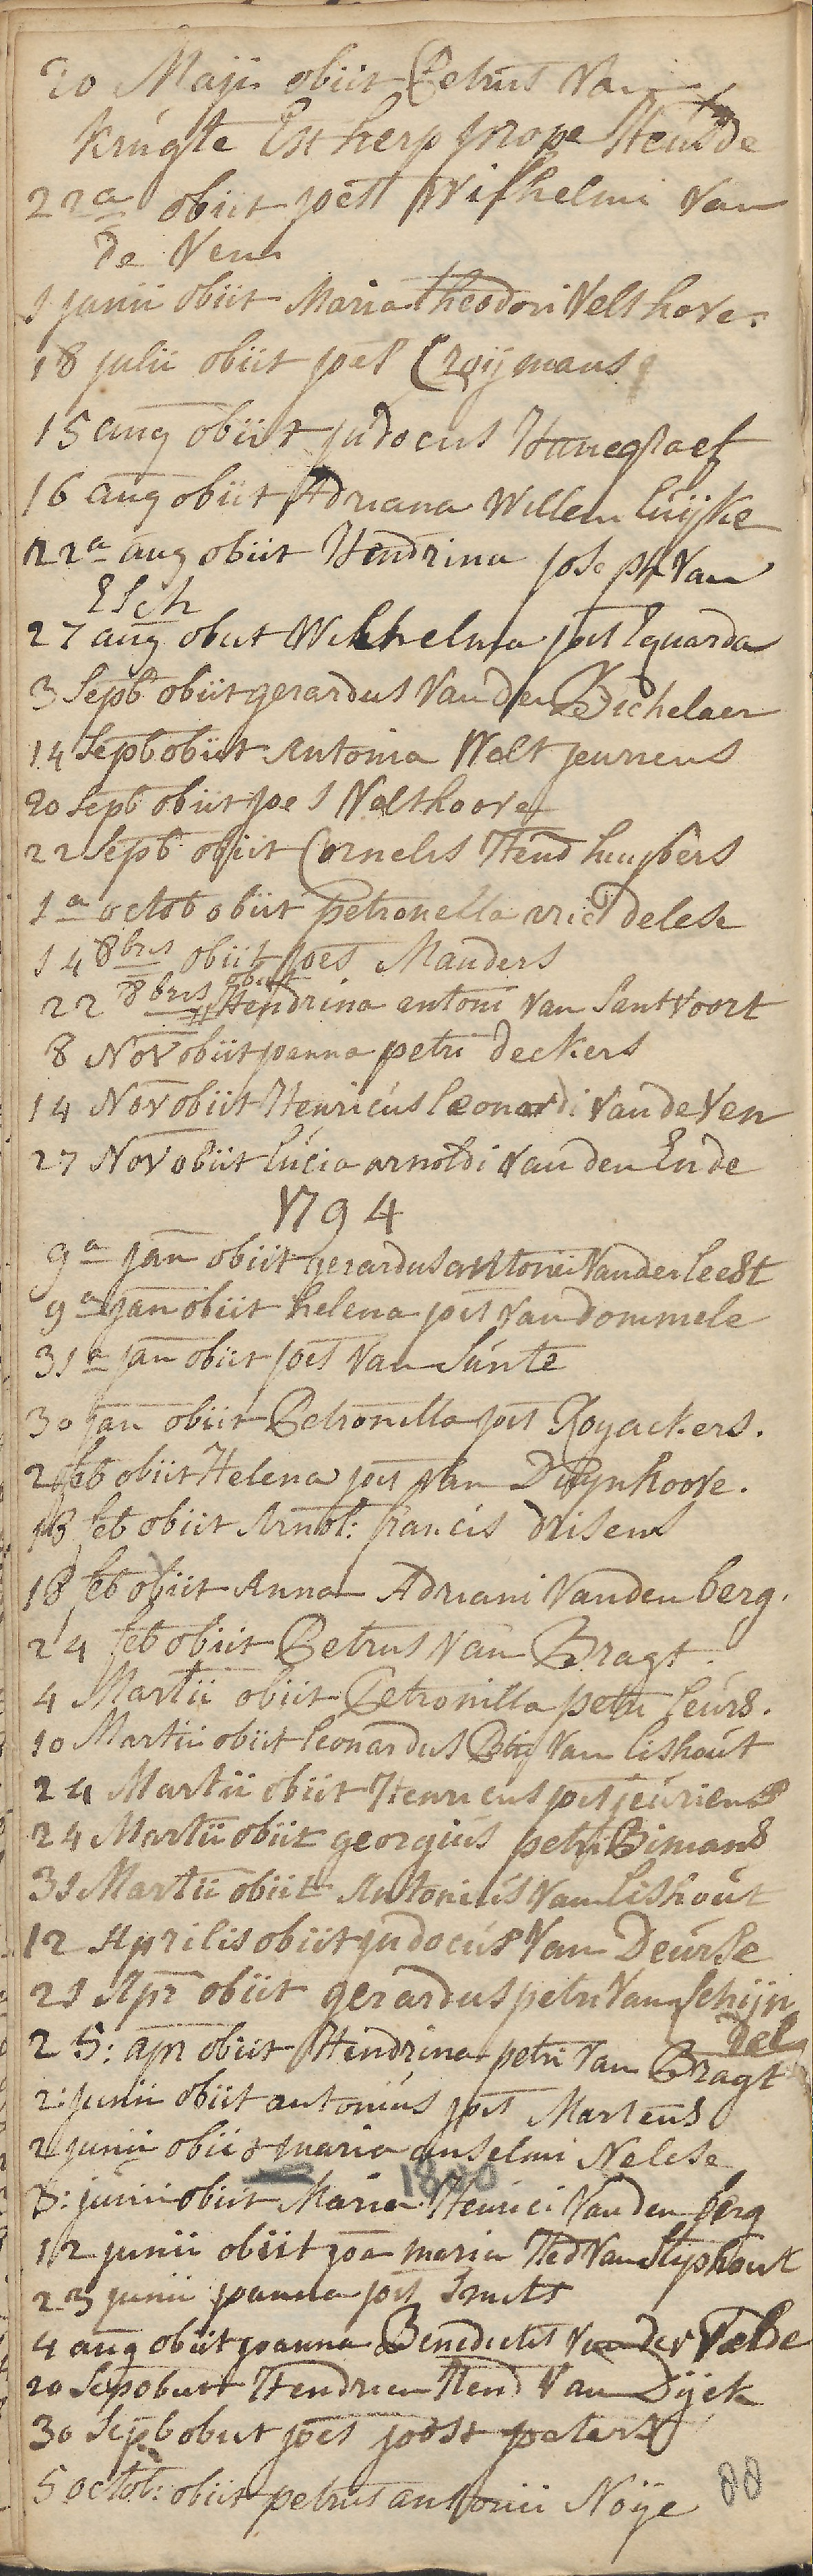 20 Maji obiit Petrus Van
krugte Est herp prope Heusde
22a obiit joes Wilhelmi Van
de Ven
1 junii obiit Maria theodori Velthove
18 julii obiit joes Croijmans
15 aug obiit judocus Hanegraef
16 aug obiit Adriana Willem Cuijke
22a aug obiit Hendrina joseph Van
Esch
27 aug obiit Wilhelma jois Equarda
3 Septb obiit gerardus Van den Bichelaer
14 Septb obiit Antonia Walt jeuriens
20 Septb obiit joes Velthoove
22 Septb obiit Cornelis Hend huybers
1a octob obiit petronella delese
14 8bris obiit joes Manders
22 8bris obiit Hendrina antoni Van Santvoort
8 Nov obiit joanna petri deckers
14 Nov obiit Henricus Leonardi Van de Ven
27 Nov obiit Lucia arnoldi Van den Ende
1794
9a jan obiit gerardus antonii Van der Leest
9a jan obiit helena jois Van dommele
31a jan obiit joes Van Sante
30 jan obiit Petronilla jois Royackers.
2 feb obiit Helena jois Van Duynhoove.
18 feb obiit Arnol: francis drisens
18 feb obiit Anna Adriani Van den berg.
24 feb obiit Petrus Van Bragt.
4 Martii obiit Petronilla petri Leurs.
10 Martii obiit Leonardus Van Lishout
24 Martii obiit Henricus jois jeuriens
24 Martii obiit georgius petri Bimans
31 Martii obiit Antonius Van Lishout
12 Aprilis obiit judocus Van Deurse
21 Apr obiit gerardus petri Van Schijn
del
25: apr obiit Hendrina petri Van Bragt
2: junii obiit antonius jois Martens
2 junii obiit maria anselmi Nelese
1800
8: junii obiit Maria Henrici Van den berg
12 junii obiit joa maria Hed Van Stiphout
23 junii joanna jois Smits
4 aug obiit joanna Benedicti Van der Velde
20 Sep obiit Hendrien Hend Van Dijck
30 Septb obiit joes joost peters
5 octob: obiit petrus antonii Noije
88